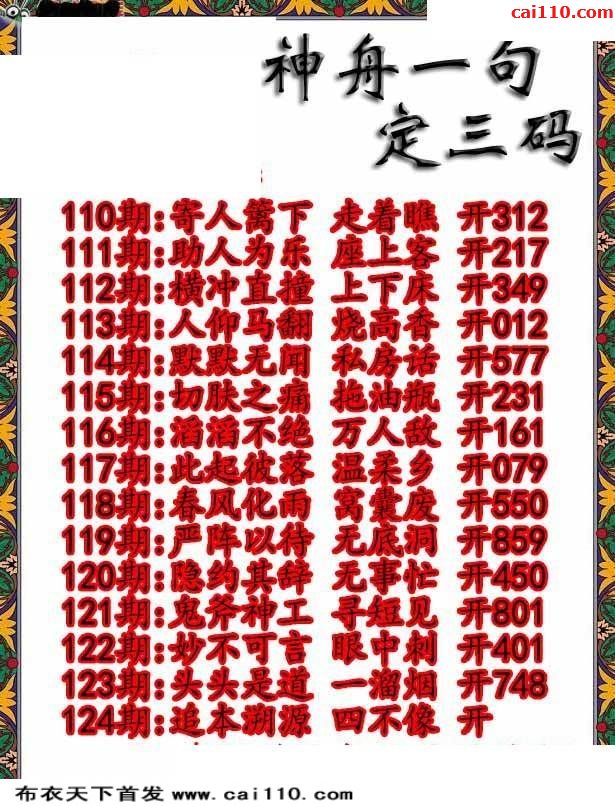 cai110.com
神舟一句
定三码
110期:寄人篱下 走着瞧 开312
111期:助人为乐 座上客 开217
112期:横冲直撞 上下床 开349
113期:人仰马翻 烧高香 开012
114期:默默无闻 私房话 开577
115期:切肤之痛 拖油瓶 开231
116期:滔滔不绝 万人敌 开161
117期:此起彼落 温柔乡 开079
118期:春风化雨 窝囊废 开550
119期:严阵以待 无底洞 开859
120期:隐约其辞 无事忙 开450
121期:鬼斧神工 寻短见 开801
122期:妙不可言 眼中刺 开401
123期:头头是道 一溜烟 开748
124期:追本溯源 四不像 开
布衣天下首发 www.cai110.com